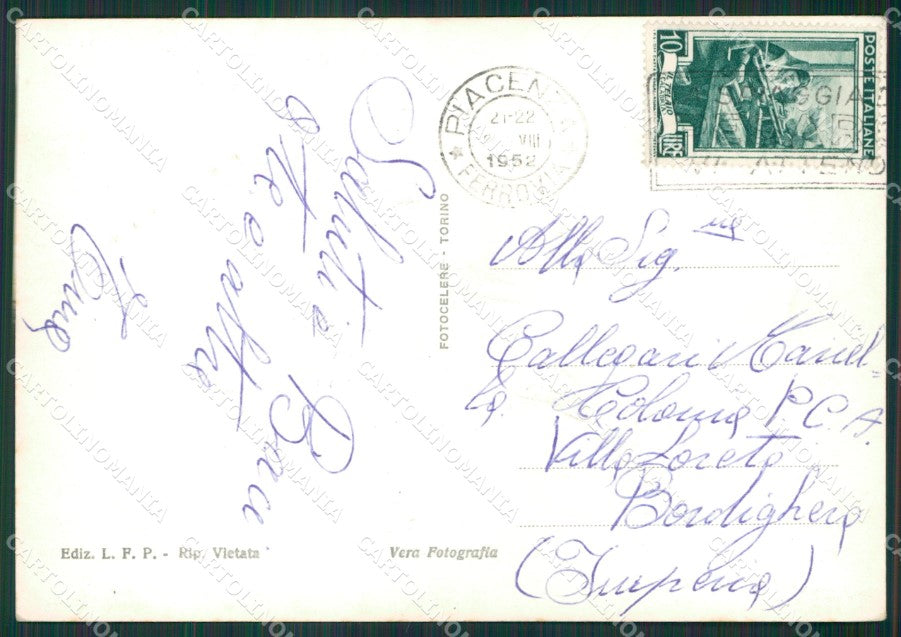 Saluti e Baci
a te e altre
PIACENZA
21-22
VIII
1952
FERROVIA
10
LIRE
POSTE ITALIANE
FOTOCELERE - TORINO
Alla Sig.na
Callegari Mariel=
la Colonia P. C. A.
Villa Loreto
Bordighera
(Imperia)
Ediz. L. F. P. - Rip. Vietata
Vera Fotografia
CARTOLINOMANIA